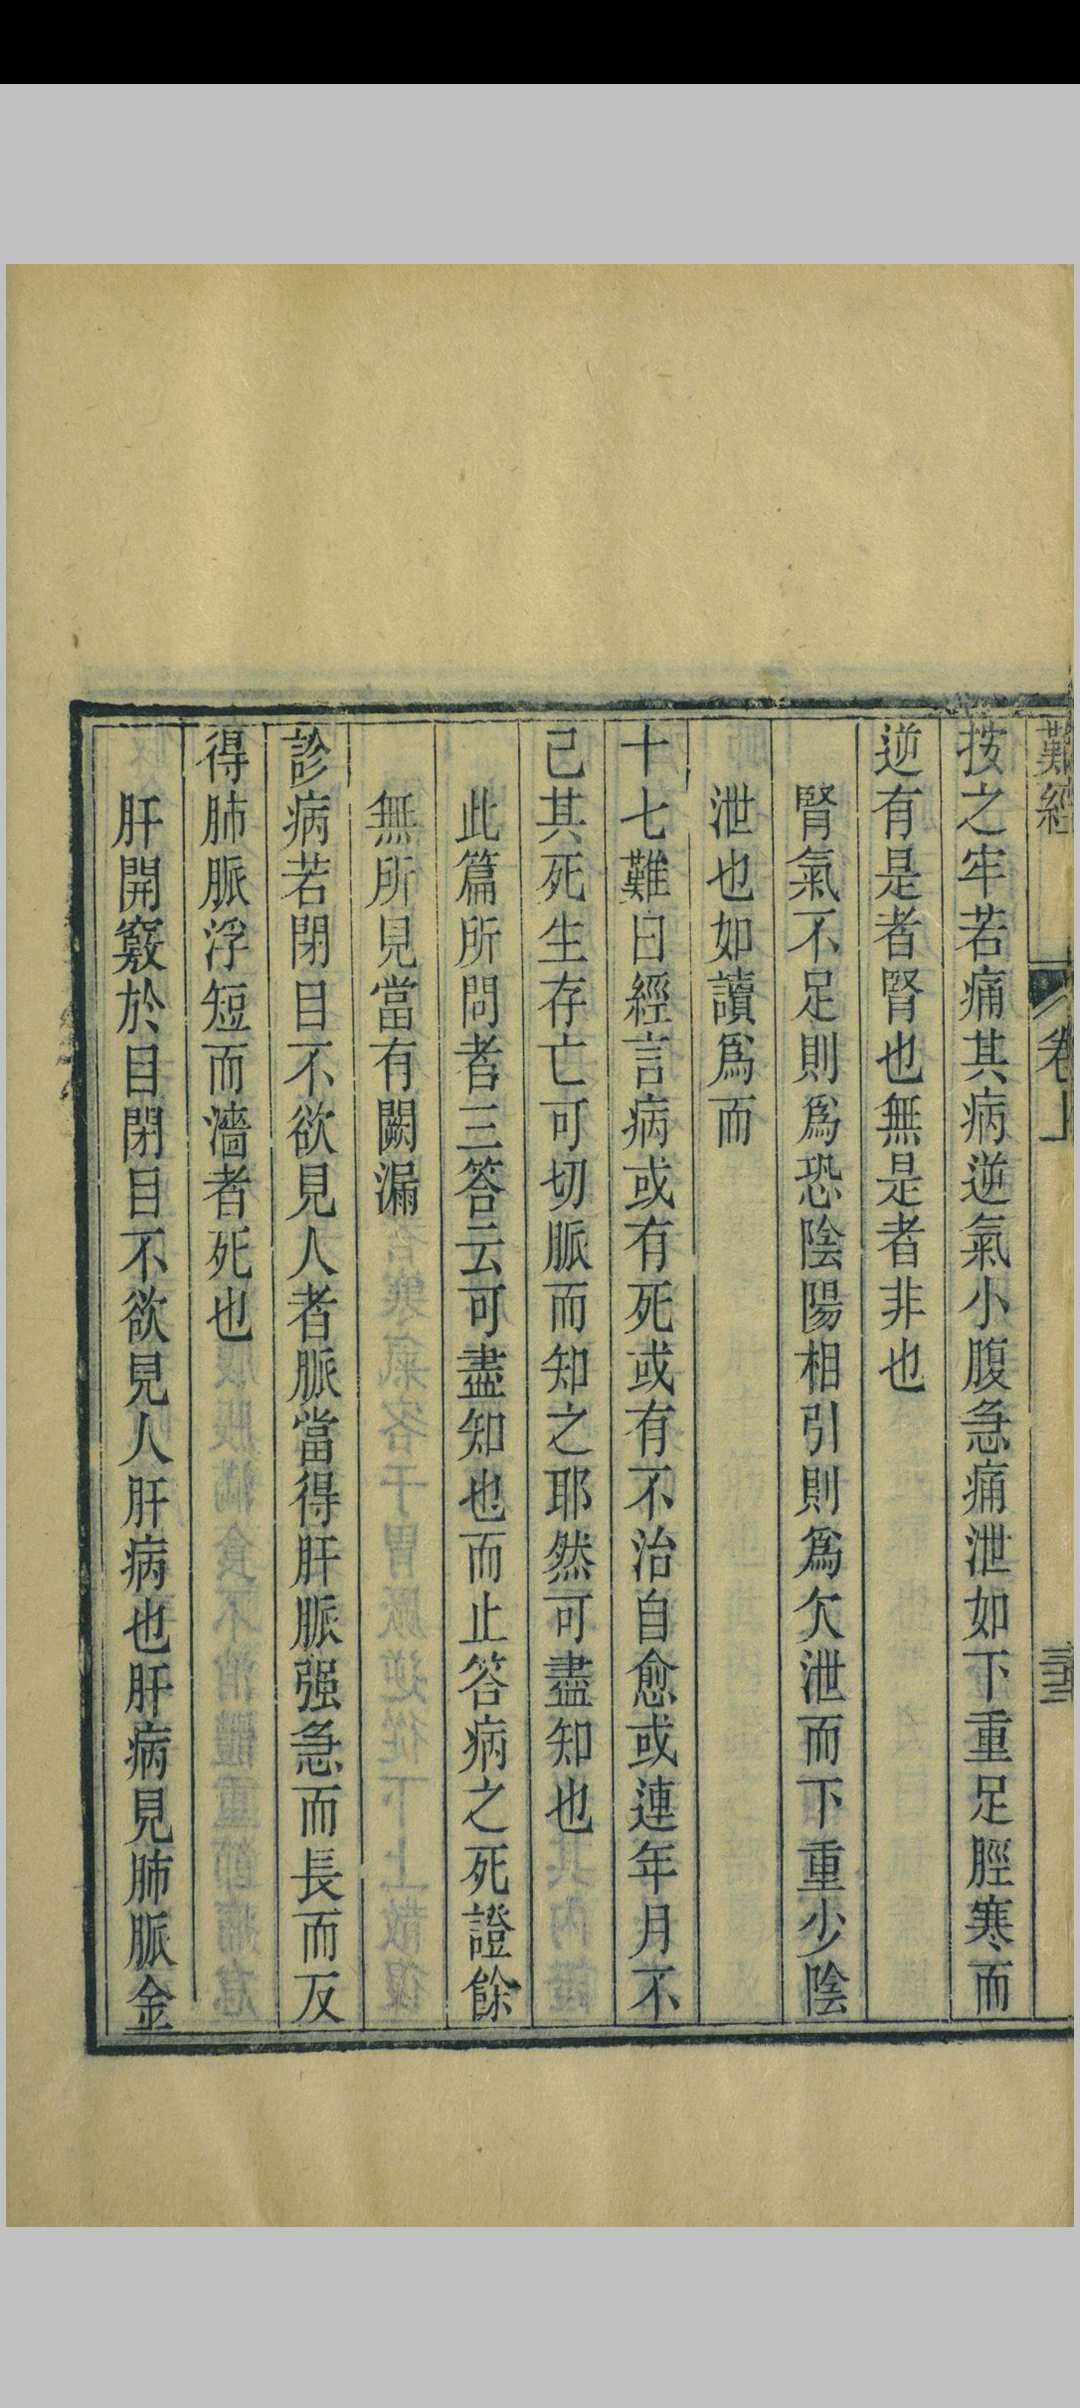 難經 卷上 三
按之牢若痛其病逆氣小腹急痛泄如下重足脛寒而
逆有是者腎也無是者非也
腎氣不足則爲恐陰陽相引則爲欠泄而下重少陰
泄也如讀爲而
十七難曰經言病或有死或有不治自愈或連年月不
己其死生存亡可切脈而知之耶然可盡知也
此篇所問者三答云可盡知也而止答病之死證餘
無所見當有闕漏
診病若閉目不欲見人者脈當得肝脈强急而長而反
得肺脈浮短而濇者死也
肝開竅於目閉目不欲見人肝病也肝病見肺脈金